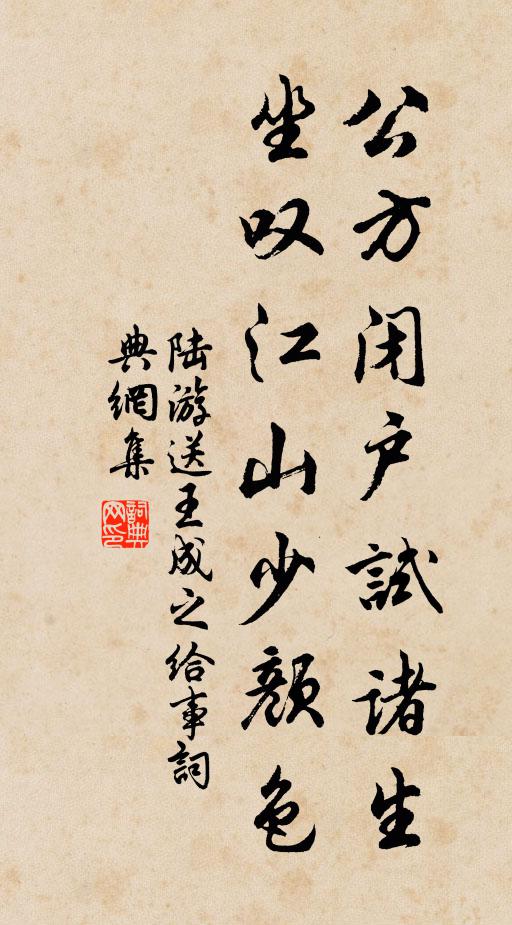 公方闭户試诸生
坐叹江山少颜色
陆游送王成之给事詞
典網集
詞典
网印